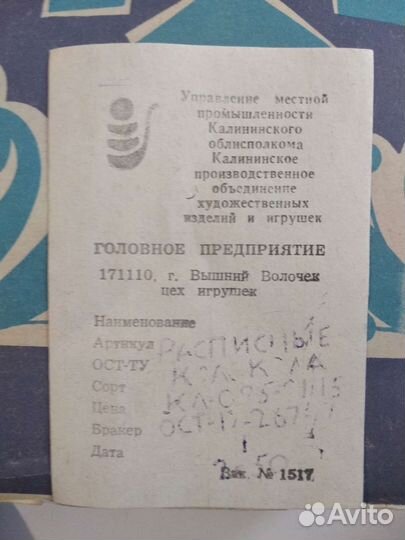 Управление местной
промышленности
Калининского
облисполкома
Калининское
производственное
объединение
художественных
изделий и игрушек
ГОЛОВНОЕ ПРЕДПРИЯТИЕ
171110, г. Вышний Волочек
цех игрушек
Наименование
Артикул РАСПИСНЫЕ
ОСТ-ТУ
Сорт
Цена
Бракер ОСТ-17-
Дата
Зак. № 1517
Avito